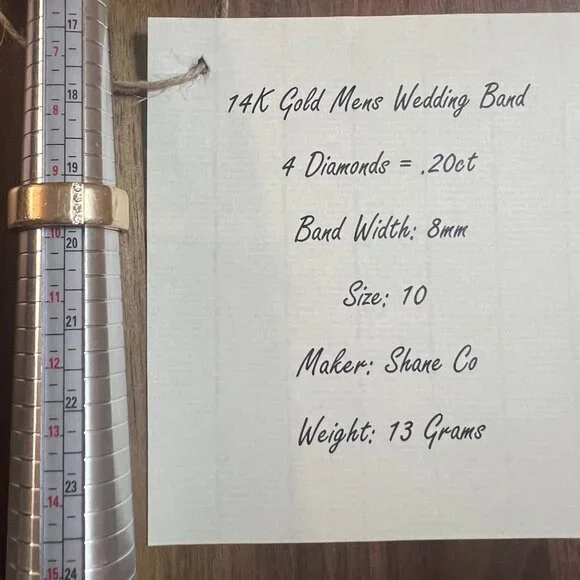 17
7
18
8
19
9
10
20
11
21
12
22
13
23
14
15
24
14K Gold Mens Wedding Band
4 Diamonds = .20ct
Band Width: 8mm
Size: 10
Maker: Shane Co
Weight: 13 Grams